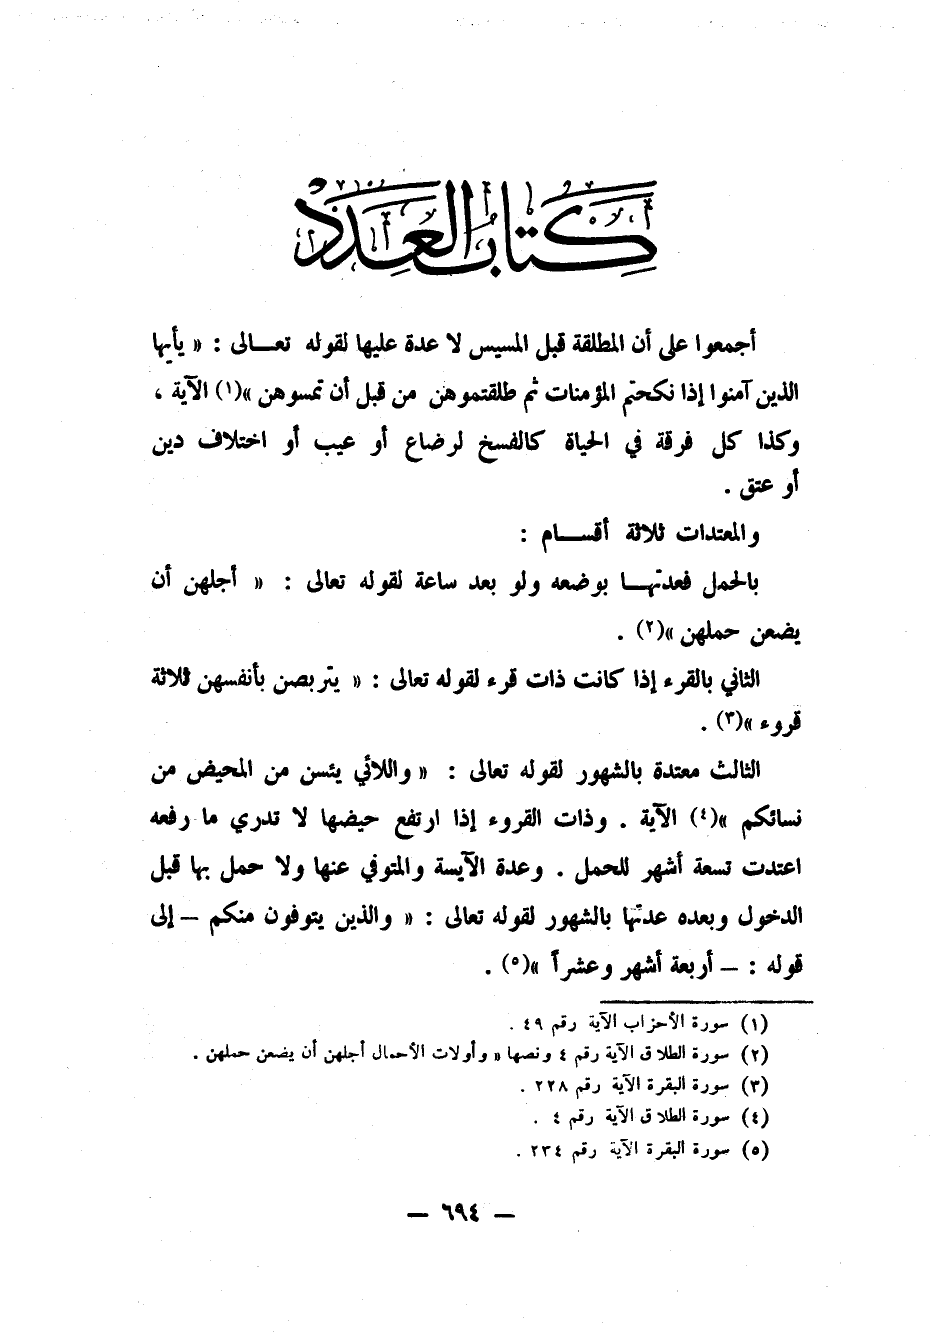 كتاب العدد
أجمعوا على أن المطلقة قبل المسيس لا عدة عليها لقوله تعـــالى : « يأيها
الذين آمنوا إذا نكحتم المؤمنات ثم طلقتموهن من قبل أن تمسوهن »(١) الآية ،
وكذا كل فرقة في الحياة كالفسخ لرضاع أو عيب أو اختلاف دين
أو عتق .
والمعتدات ثلاثة أقســـام :
بالحمل فعدتهـــا بوضعه ولو بعد ساعة لقوله تعالى : « أجلهن أن
يضعن حملهن »(٢) .
الثاني بالقرء إذا كانت ذات قرء لقوله تعالى : « يتربصن بأنفسهن ثلاثة
قروء »(٣) .
الثالث معتدة بالشهور لقوله تعالى : « واللائي يئسن من المحيض من
نسائكم »(٤) الآية . وذات القروء إذا ارتفع حيضها لا تدري ما رفعه
اعتدت تسعة أشهر للحمل . وعدة الآيسة والمتوفي عنها ولا حمل بها قبل
الدخول وبعده عدتها بالشهور لقوله تعالى : « والذين يتوفون منكم – إلى
قوله : – أربعة أشهر وعشراً »(٥) .
(١) سورة الأحزاب الآية رقم ٤٩ .
(٢) سورة الطلاق الآية رقم ٤ ونصها « وأولات الأحمال أجلهن أن يضعن حملهن .
(٣) سورة البقرة الآية رقم ٢٢٨ .
(٤) سورة الطلاق الآية رقم ٤ .
(٥) سورة البقرة الآية رقم ٢٣٤ .
– ٦٩٤ –